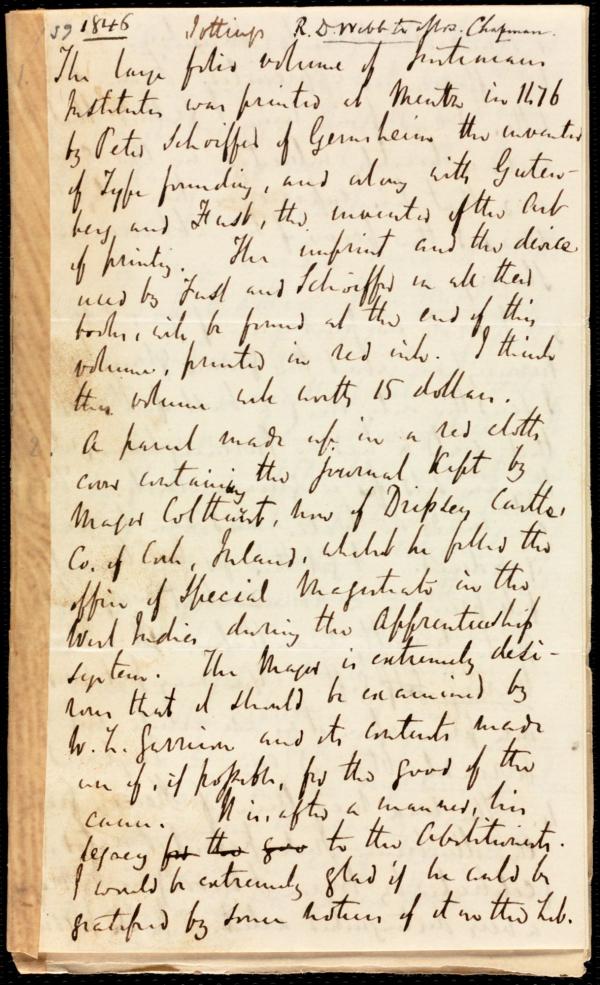 59 1846 Jottings R. D. Webb to Mrs. Chapman.
1. The large folio volume of Justinians
Institutes was printed at Mentz in 1476
by Peter Schoiffer of Gernsheim the inventor
of Type founding, and along with Guten-
berg and Fust, the inventor of the Art
of printing. The imprint and the device
used by Fust and Schoiffer in all their
books, will be found at the end of this
volume, printed in red ink. I think
this volume well worth 15 dollars.
2. A parcel made up in a red cloth
cover containing the Journal Kept by
Major Colthurst, now of Dripsey Castle,
Co. of Cork, Ireland, whilst he filled the
office of Special Magistrate in the
West Indies during the Apprenticeship
system. The Major is extremely desi-
rous that it should be examined by
W. L. Garrison and its contents made
use of, if possible, for the good of the
cause. It is, after a manner, his
legacy for the goo to the Abolitionists.
I would be extremely glad if he could be
gratified by some notices of it in the Lib.